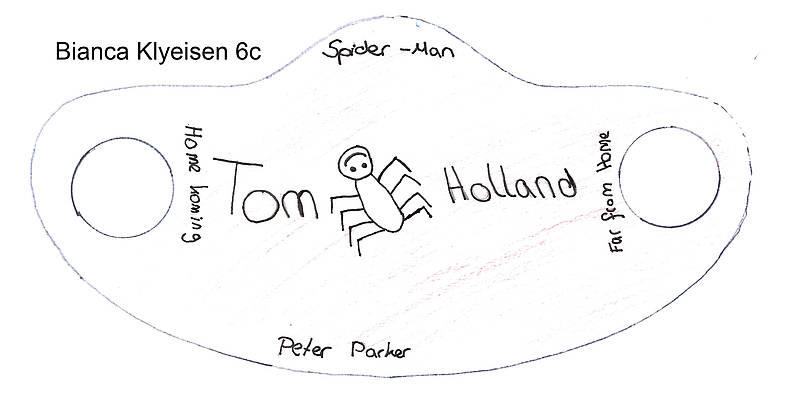 Bianca Klyeisen 6c
Spider-Man
Home homing
Tom Holland
Far from Home
Peter Parker